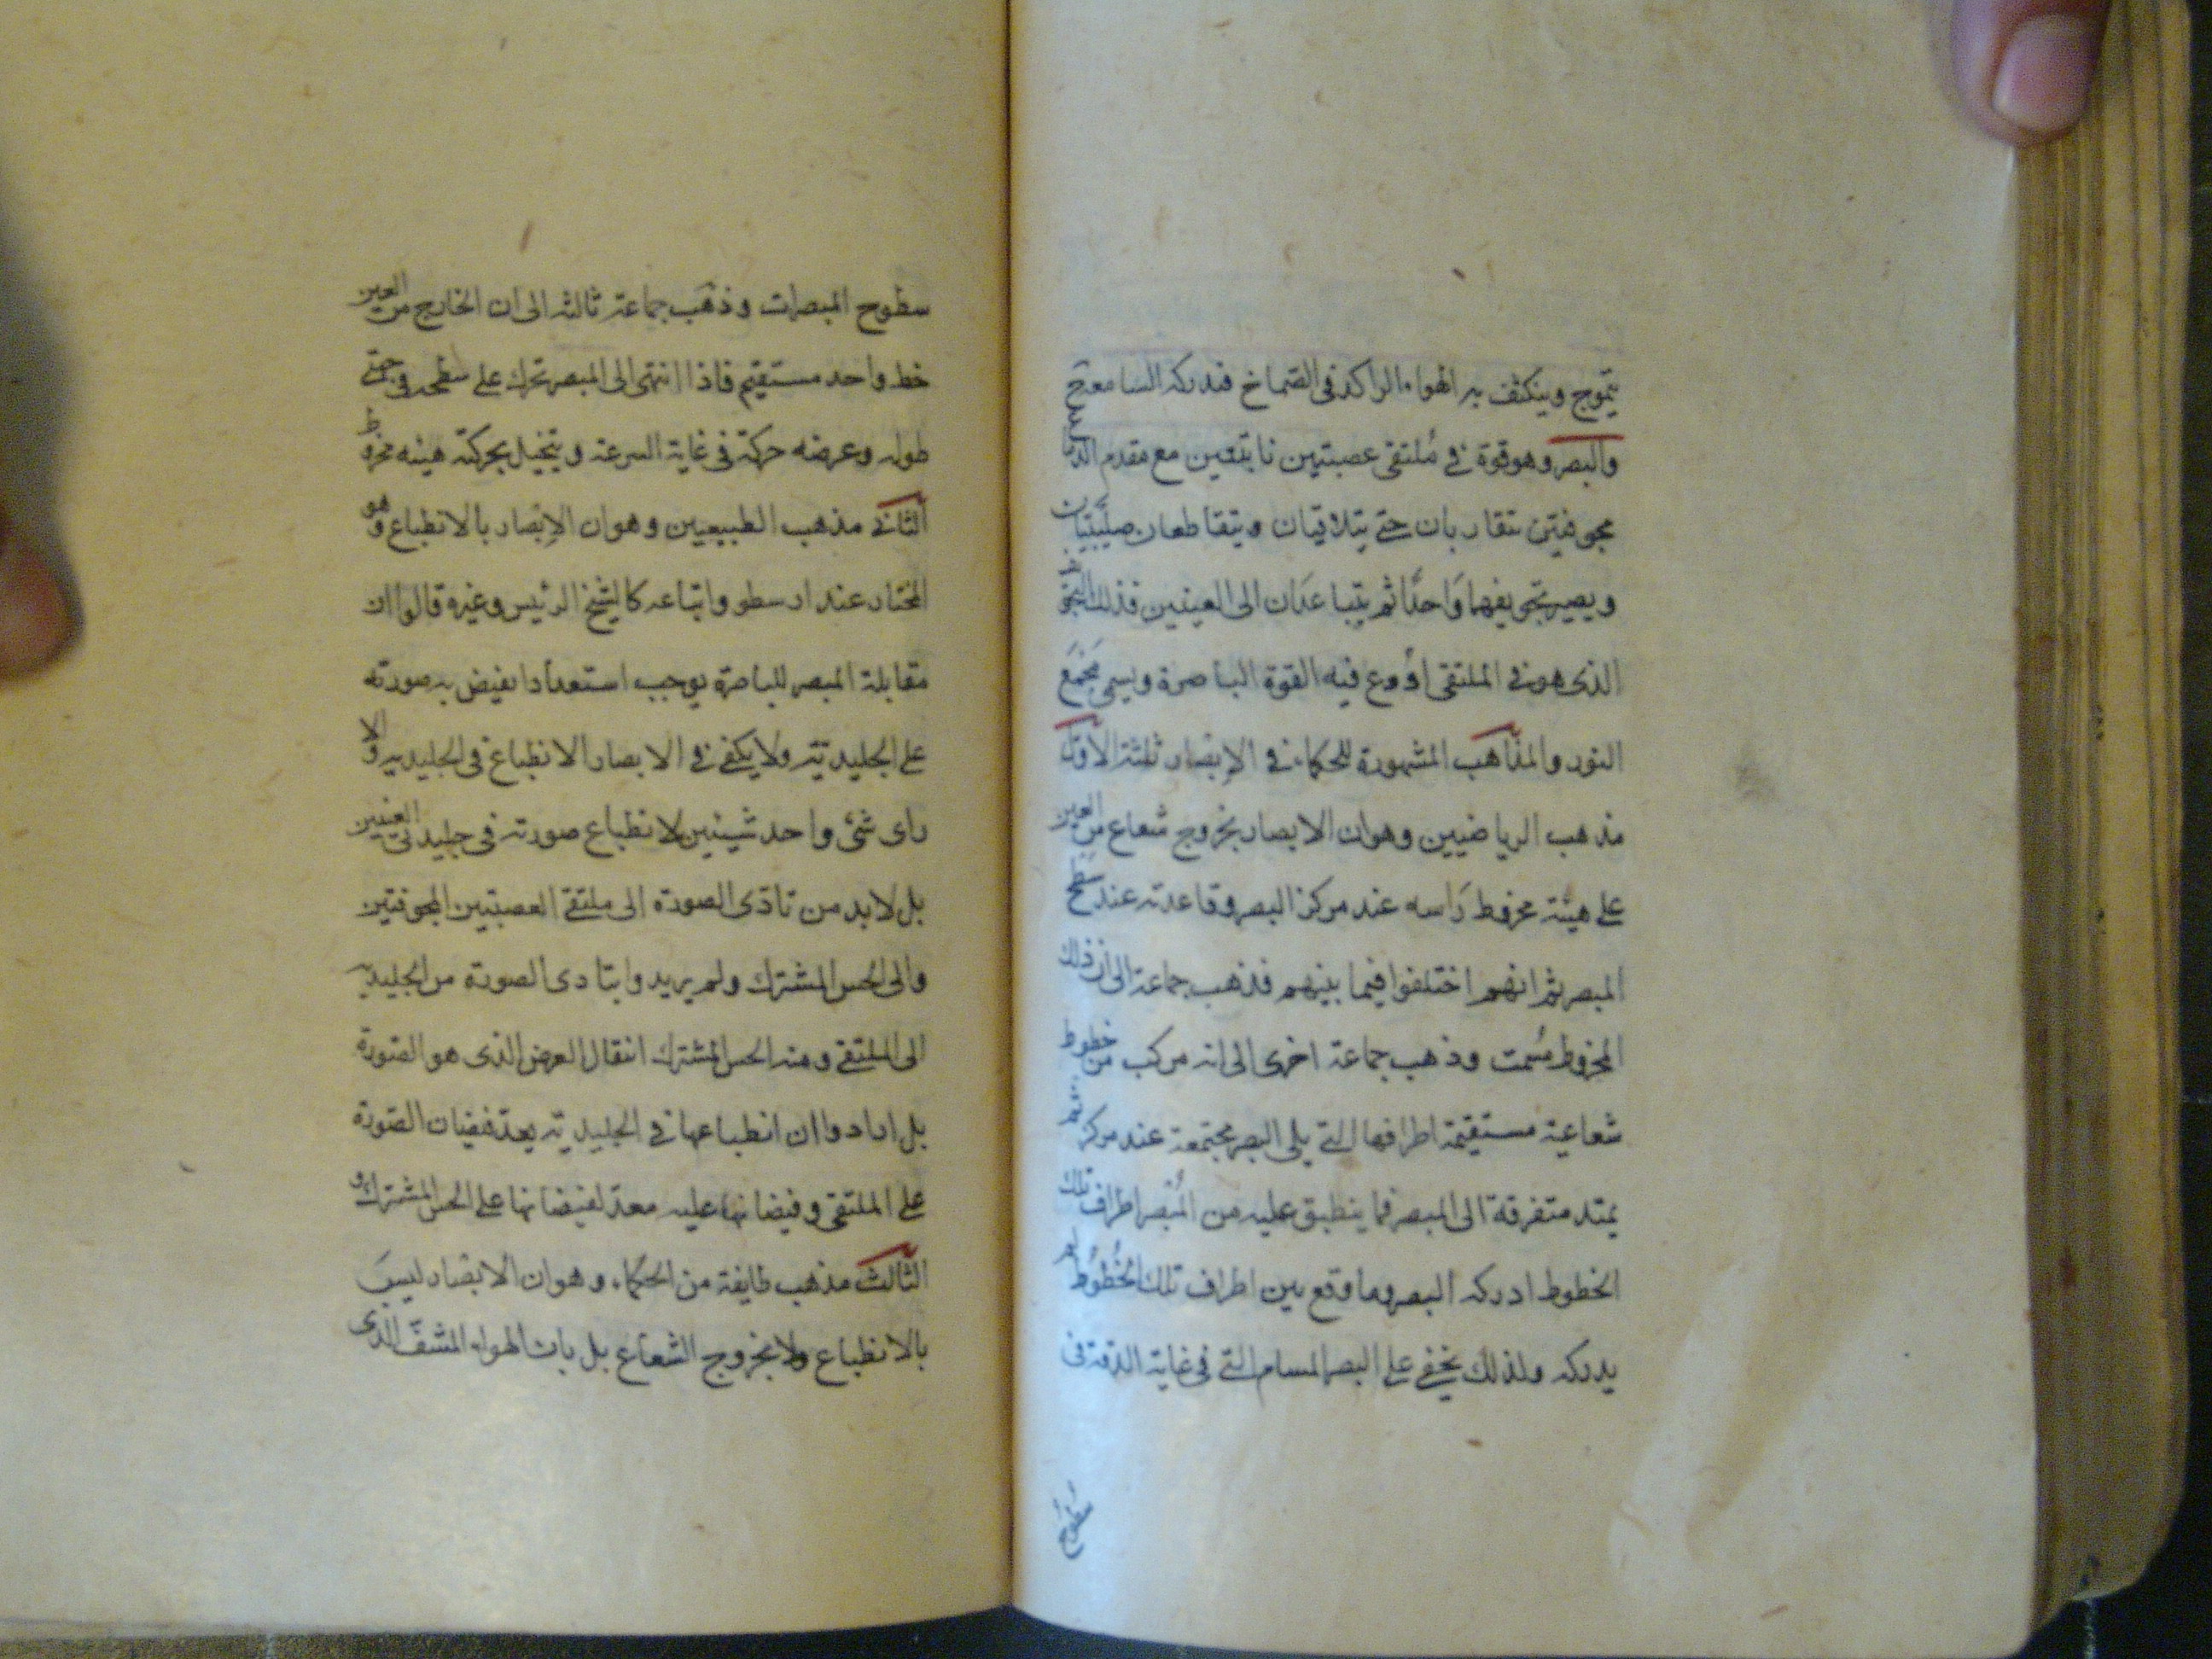 يتموج ويتكثف به الهواء الراكد في الصماخ فتدركه السامعة ح
والبصر وهو قوة في ملتقى عصبتين نابتتين مع مقدم الدماغ
مجوفتين تتقاربان حتى يتلاقيان ويتقاطعان صليبيتان
ويصير تجويفهما واحدًا ثم يتباعدان الى العينين فذلك التجويف
الذى هو في الملتقى اودع فيه القوة الباصرة ويسمى مجمع
النور والمذاهب المشهورة للحكماء في الإبصار ثلثة الاول
مذهب الرياضيين وهو ان الابصار بخروج شعاع من العين
على هيئة مخروط رأسه عند مركز البصر وقاعدته عند سطح
المبصر ثم انهم اختلفوا فيما بينهم فذهب جماعة الى ان ذلك
المخروط مصمت وذهب جماعة اخرى الى انه مركب من خطوط
شعاعية مستقيمة اطرافها التي يلى البصر مجتمعة عند مركزه ثم
يمتد متفرقة الى المبصر فما ينطبق عليه من المبصر اطراف تلك
الخطوط ادركه البصر وما وقع بين اطراف تلك الخطوط لم
يدركه ولذلك يخفى على البصر المسام التي في غاية الدقة في
سطوح
سطوح المبصرات وذهب جماعة ثالثه الى ان الخارج من العين
خط واحد مستقيم فاذا انتهى الى المبصر تحرك على سطحه في جهتي
طوله وعرضه حركة في غاية السرعة ويتخيل بحركته هيئه مخروط
الثاني مذهب الطبيعيين وهو ان الإبصار بالانطباع وهو
المختار عند ارسطو واتباعه كالشيخ الرئيس وغيره قالوا ان
مقابلة المبصر للباصرة يوجب استعدادا يفيض به صورته
على الجليدية ولا يكفي في الابصار الانطباع في الجليديه والا
راى شئ واحد شيئين لانطباع صورته في جليدتى العينين
بل لابد من تادى الصورة الى ملتقى العصبتين المجوفتين
والى الحس المشترك ولم يريدوا بتادى الصورة من الجليدية
الى الملتقى ومنه الحس المشترك انتقال العرض الذى هو الصورة
بل ارادوا ان انطباعها في الجليدية يعد فيضان الصورة
على الملتقى وفيضانها عليه معد لفيضانها على الحس المشترك و
الثالث مذهب طايفة من الحكماء وهو ان الابصار ليس
بالانطباع ولا بخروج الشعاع بل بان الهواء المشف الذى